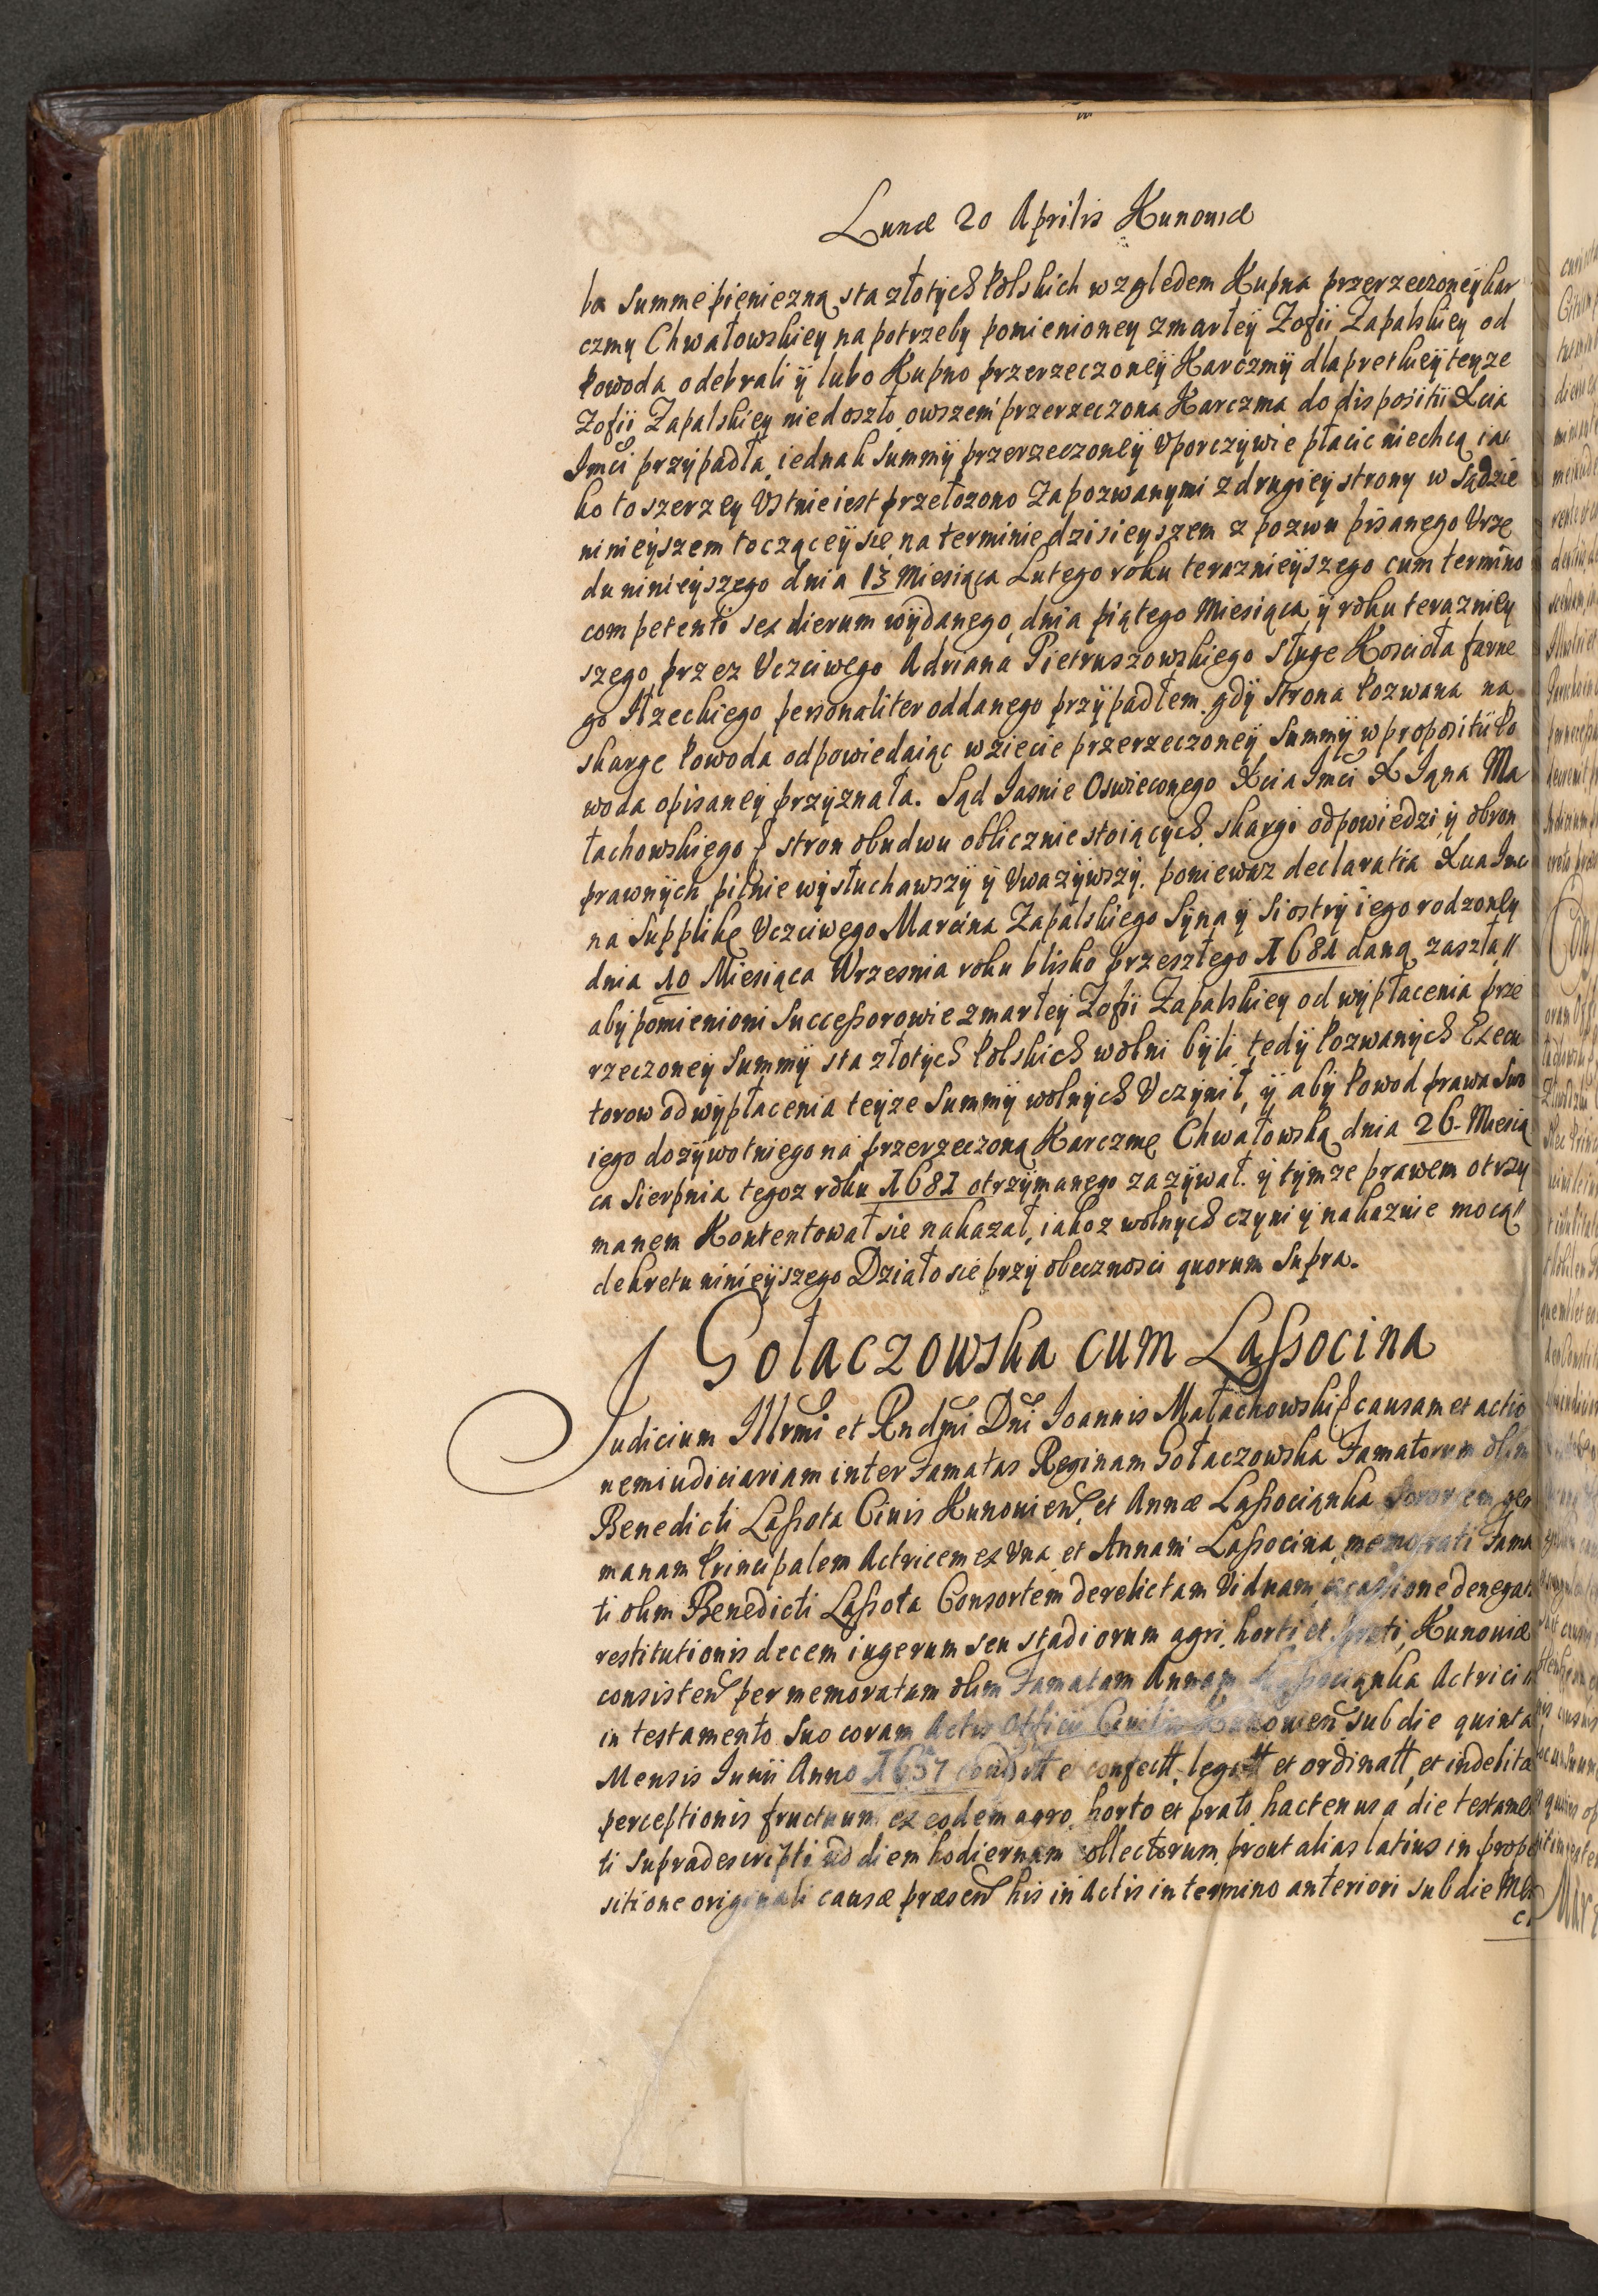 Lunæ 20 Aprilis Kunoviæ
bą Summe pieniezną sta złotych Polskich względem Kupna przerzeczoneÿ kar
czmy Chwałowskiey na potrzeby pomienioney zmarłeÿ Zofii Zapalskiey od
Powoda odebrali ÿ lubo Kupno przerzeczoneÿ Karczmÿ dla prętkieÿ teyze
Zofii Zapalskiey niedoszło, owszem przerzeczona Karczma do dispositii Xcia
Jmći przÿpadła, iednak Summÿ przerzeczoneÿ Uporczÿwie płacic niechcą iak
ko to szerzey Ustnie iest przełozono Za pozwanymi z drugieÿ strony w Sądzie
ninieÿszem toczącey się, na terminie dzisieyszem z pozwu pisanego Urzę
du ninieÿszego dnia 13 Miesiąca Lutego roku teraznieÿszego cum termino
competenti sex dierum wÿdanego, dnia piątego Miesiąca ÿ roku terazniey
szego przez Uczciwego Adriana Pietruszowskiego Sługe Koscioła farne
go Iłzeckiego personaliter oddanego przÿpadłem, gdÿ Strona Pozwana na
skarge Powoda odpowiedaiąc wziecie przerzeczoneÿ Summÿ w propositii Po
woda opisaneÿ przÿznała. Sąd Iasnie Oswieconego Xcia Jmći X Iąna Ma
łachowskiego & stron obudwu oblicznie stoiących, skargi odpowiedzi ÿ obron
prawnÿch pilnie wÿsłuchawszÿ ÿ Uwazÿwszÿ, poniewaz declaratia Xcia Jmci
na Supplikę Uczciwego Marcina Zapalskiego Sÿna ÿ Siostrÿ iego rodzoney
dnia 10 Miesiąca Wrzesnia roku blisko przeszłego 1681 daną zaszła,
abÿ pomienioni Successorowie zmarłeÿ Zofii Zapalskiey od wÿpłacenia prze
rzeczoneÿ Summÿ sta złotÿch Polskich wolni bÿli, tedÿ Pozwanÿch Execu
torow od wÿpłacenia teÿze Summÿ wolnÿch Uczÿnił, ÿ abÿ Powod prawa Swo
iego dozÿwotniego na przerzeczoną Karczmę Chwałowską dnia 26 Miesią
ca Sierpnia tegoz roku 1681 otrzÿmanego zazÿwał, ÿ tÿmze prawem otrzy
manem Kontentował sie nakazał, iakoz wolnych czyni ÿ nakazuie mocą
dekretu ninieÿszego Działo sie przÿ obecznosci quorum Supra.
Gołaczowska cum Lassocina
Iudicium Illrmi et Rndmi Dni Ioannis Małachowski & causam et actio
nem iudiciariam inter Famatas Reginam Gołaczowska Famatorum olim
Benedicti Lassota Civis Kunovien, et Annæ Lassocianka Sororem ger
manam Principalem Actricem ex Una, et Annam Lassocina, memorati Fama
ti olim Benedicti Lassota Consortem derelictam Viduam, occassione denegat
restitutionis decem iugerum seu stadiorum agri, horti et prati, Kunoviæ
consisten per memoratam olim Famatam Annam Lassocianka Actrici
in testamento Suo coram Actis Officii Civilis Kunovien sub die quinta
Mensis Iunii Anno 1657 confectt, legatt et ordinatt, et indebitæ
perceptionis fructuum ex eodem agro, horto et prato hactenus a die testamen
ti Supradescripti ad diem hodiernam collectorum, prout alias latius in propo
sitione originali causæ præsen his in Actis in termino anteriori sub die